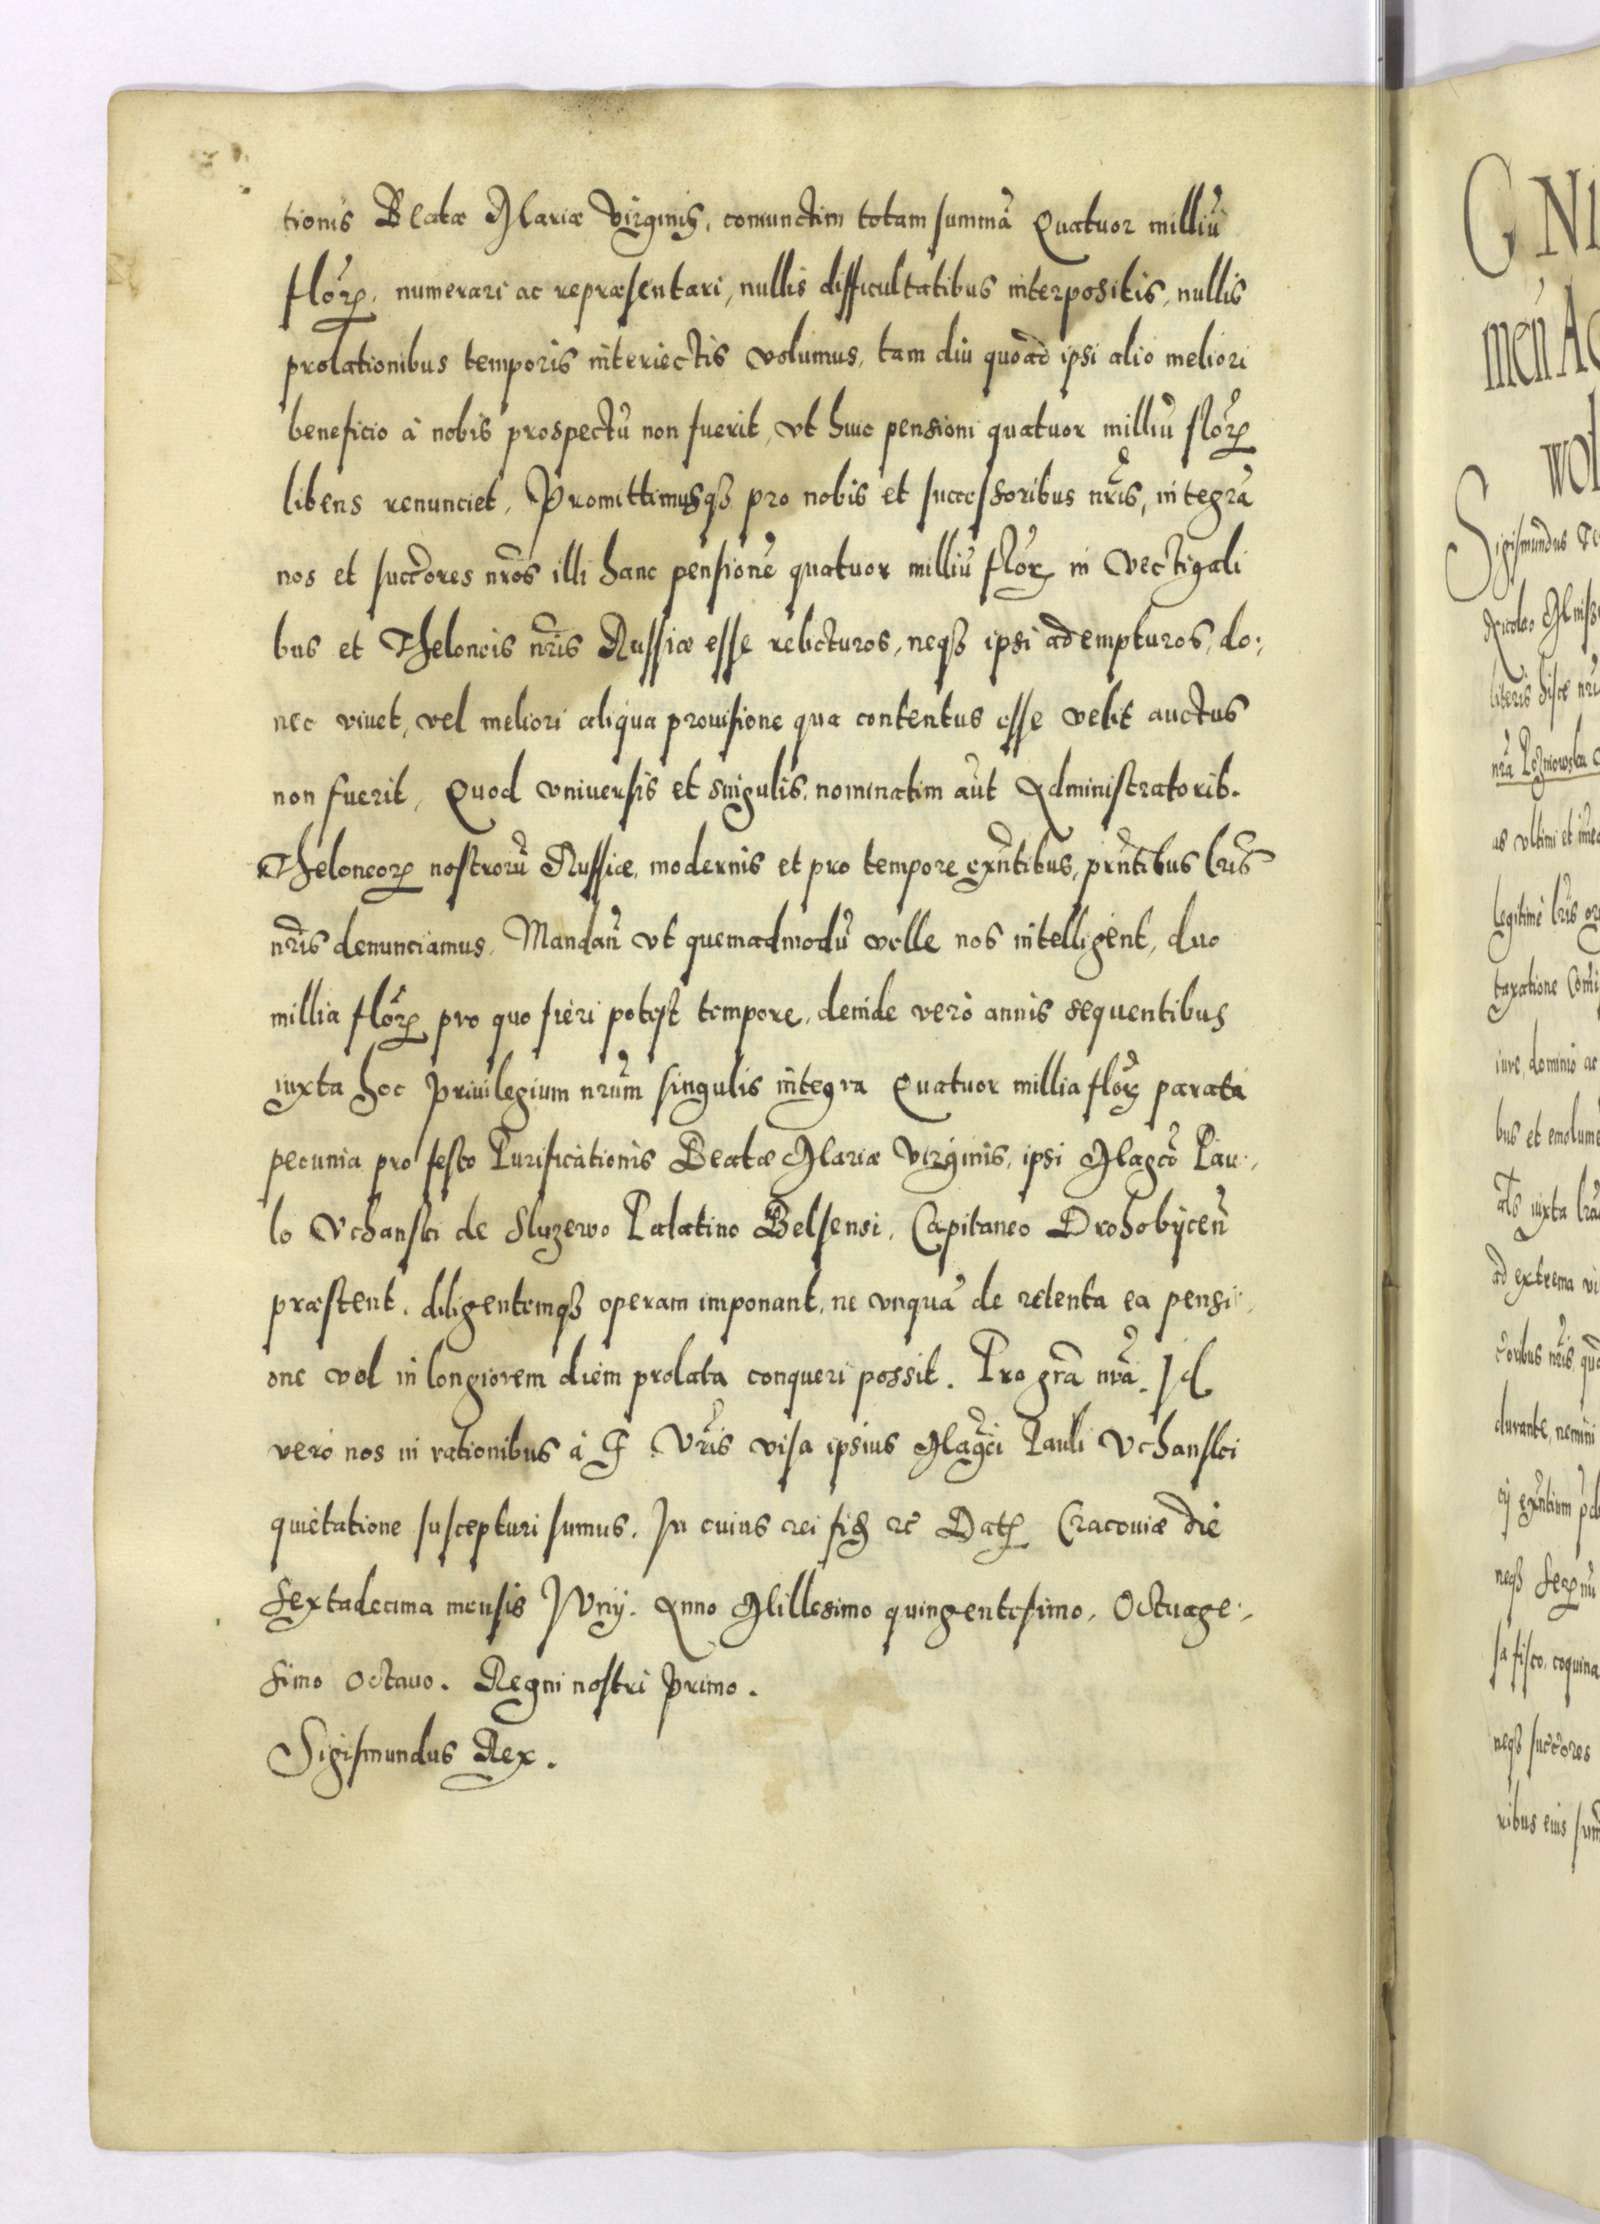 tionis Beatæ Mariæ Virginis, coniunctim totam summã Quatuor milliũ
florꝝ, numerari ac repræsentari, nullis difficultatibus interpositis, nullis
prolationibus temporis interiectis volumus, tam diu quoad ipsi alio meliori
beneficio à nobis prospectũ non fuerit, vt huic pensioni quatuor milliũ florꝝ
libens renunciet, Promittimusqꝫ pro nobis et successoribus nr̃is, integrã
nos et succ̃ores nr̃os illi hanc pensionẽ quatuor milliũ florꝝ in Vectigali
bus et Theloneis nr̃is Russiæ esse relicturos, neqꝫ ipsi adempturos, do:
nec viuet, vel meliori aliqua prouisione qua contentus esse velit auctus
non fuerit, Quod vniuersis et singulis, nominatim aũt Administratorib.
Theloneorꝝ nostrorũ Russiæ, modernis et pro tempore exñtibus, prñtibus lr̃is
nr̃is denunciamus, Mandañ vt quemadmodũ velle nos intelligent, duo
millia florꝝ pro quo fieri potest tempore, deinde verò annis sequentibus
iuxta hoc Priuilegium nrũm singulis integra Quatuor millia florꝝ parata
pecunia pro festo Purificationis Beatæ Mariæ Virginis, ipsi Magc̃o Pau:
lo Vchanski de Sluzewo Palatino Belsensi, Capitaneo Drohobÿceñ
præstent, diligentemqꝫ operam imponant, ne vnquã de retenta ea pensi:
one vel in longiorem diem prolata conqueri possit. Pro gr̃a nr̃a. Id
verò nos in rationibus à F. Vr̃is visa ipsius Magc̃i Pauli Vchanski
quietatione suscepturi sumus. In cuius rei fiꝫ ꝛc̃ Datꝝ Cracouiæ die
sextadecima mensis Iunÿ. Anno Millesimo quingentesimo, Octuage:
simo octauo. Regni nostri Primo.
Sigismundus Rex.
G NI
meñ Ac
wol
Sigismundus Te
Nicolao
literis hisce nr̃i
ñra
us vltimi et
legitimè lr̃is or
taxatione Com̃i
iure, dominio ac
bus et emolume
al̃s iuxta lr̃a
ad extrema vi
c̃oribus nr̃is, quo
durante, nemini
neqꝫ
sa fisco, coquina
neqꝫ succ̃ores
ribus eius